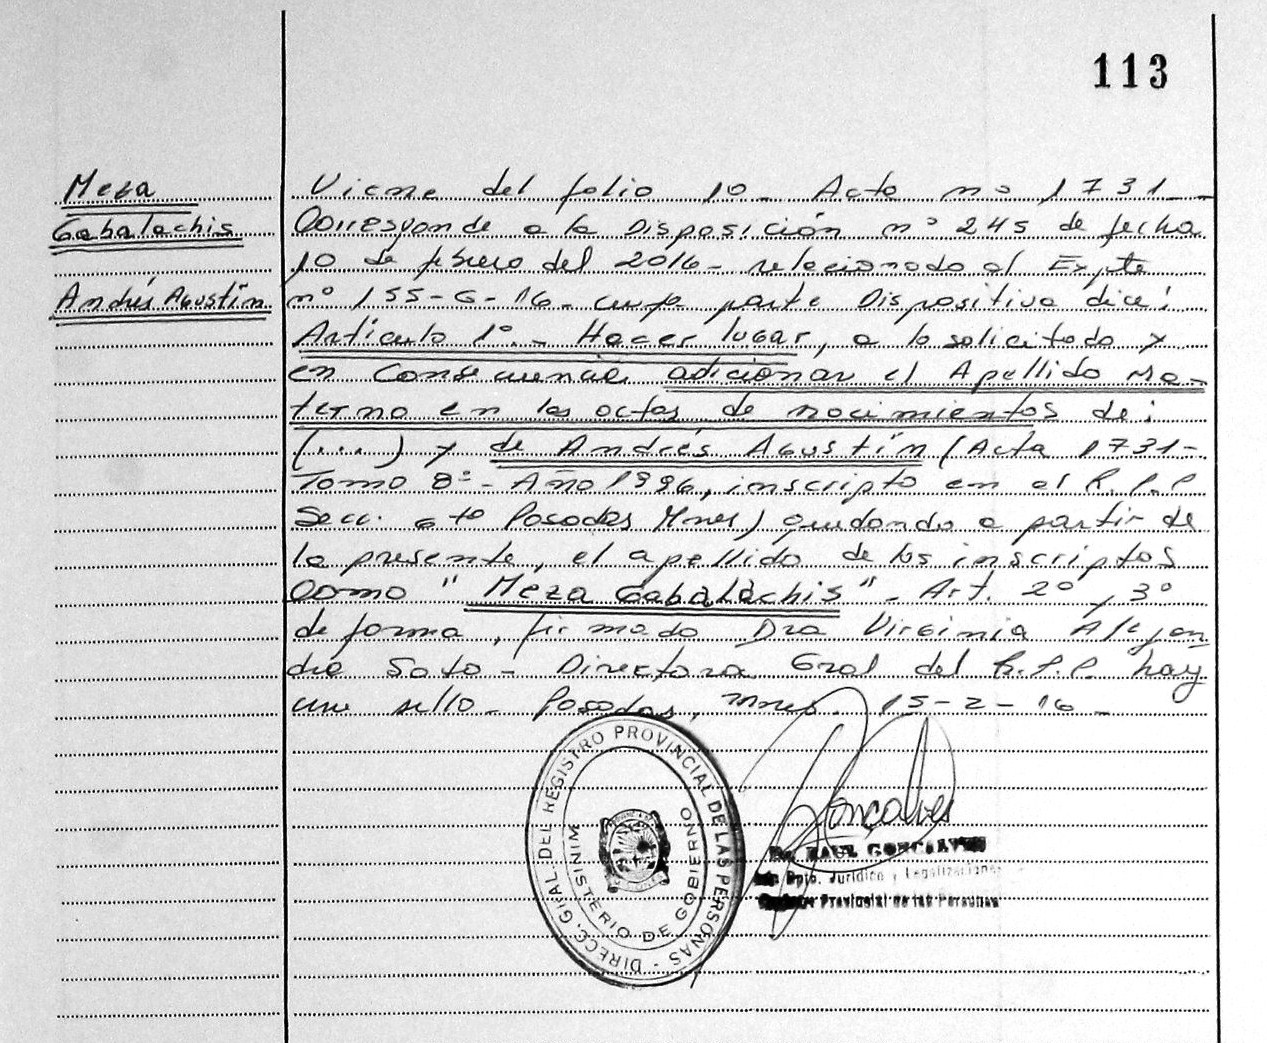 113
Meza
Gabalachis
Andrés Agustín
Viene del folio 10 - Acta nº 1731 -
Corresponde a la Disposición nº 245 de fecha
10 de febrero del 2016 - relacionado al Expte
nº 155-G-16 - cuya parte Dispositiva dice:
Artículo 1º.- Hacer lugar, a lo solicitado y
en Consecuencia adicionar el Apellido Ma-
terno en las actas de nacimientos de:
(...) y de Andrés Agustín (Acta 1731-
Tomo 8º - Año 1996, inscripto en el R.P.P
Secc. 6ta Posadas Mnes) quedando a partir de
la presente, el apellido de los inscriptos
como "Meza Gabalachis" - Art. 2º, 3º
de forma, firmado Dra Virginia Alejan
dra Soto - Directora Gral del R.P.P. hay
un sello - Posadas, Mnes. 15-2-16 -
DIRECC. GRAL. DEL REGISTRO PROVINCIAL DE LAS PERSONAS -
MINISTERIO DE GOBIERNO
Goncalves
RAUL GONCALVES
Dpto. Jurídico y Legalizaciones
Provincial de las Personas